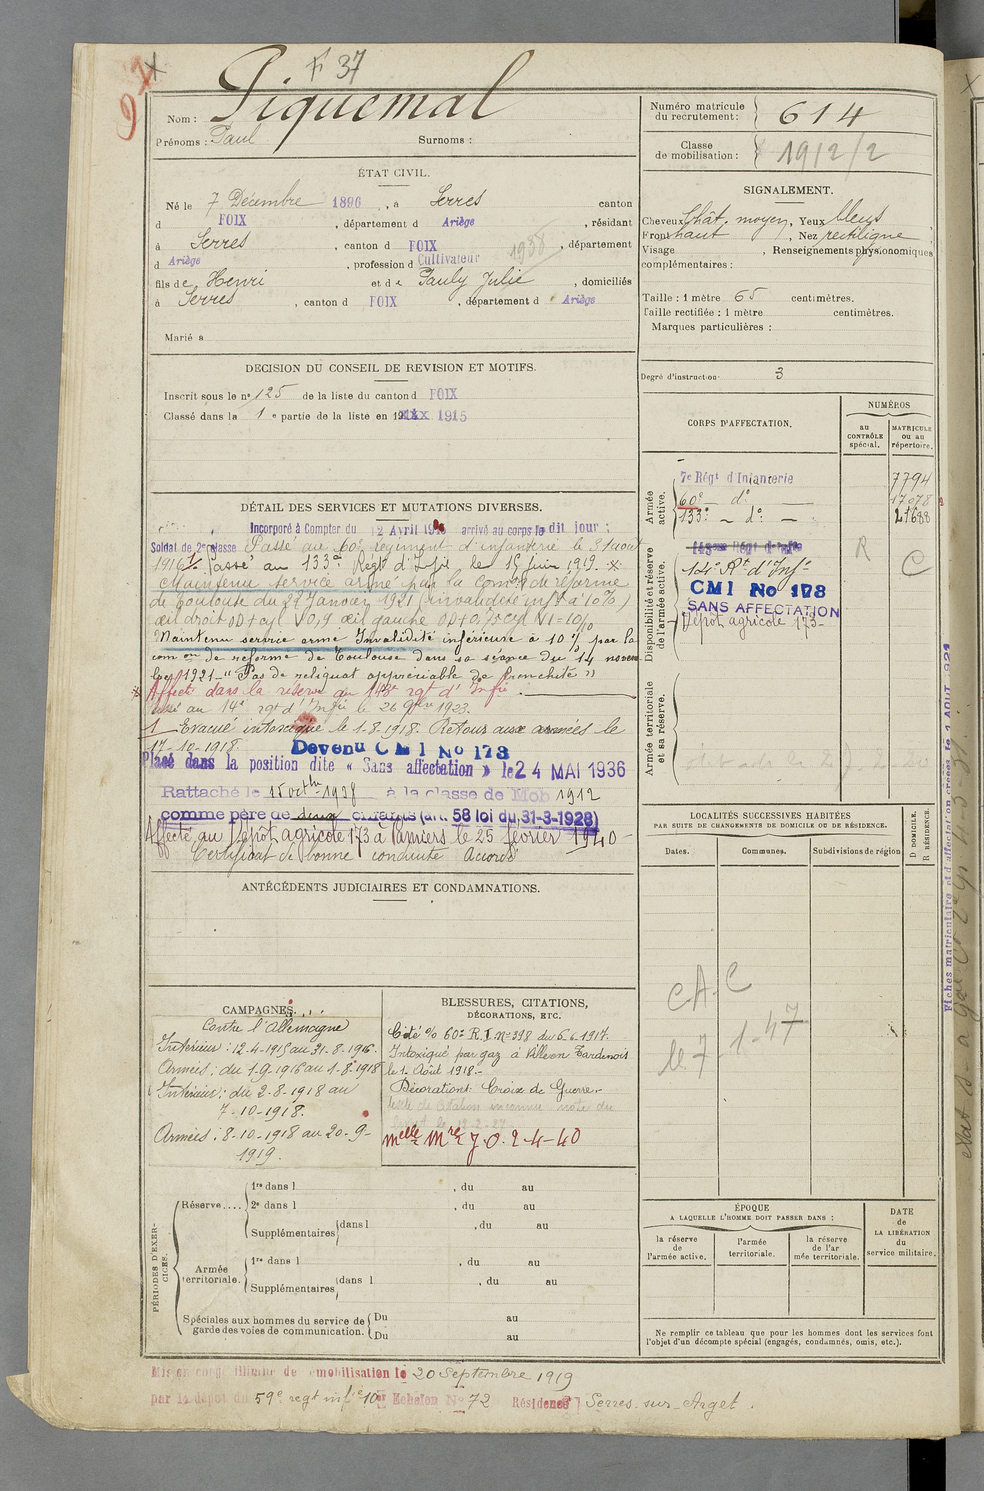 F 37
Nom : Piquemal
Prénoms : Paul Surnoms :
ÉTAT CIVIL.
Né le 7 Décembre 1896, à Serres canton
d FOIX, département d Ariège, résidant
à Serres, canton d FOIX, département
1938
d Ariège, profession d Cultivateur
fils de Henri et de Pauly Julie, domiciliés
à Serres, canton d FOIX, département d Ariège
Marié à
DECISION DU CONSEIL DE REVISION ET MOTIFS.
Inscrit sous le n° 125 de la liste du canton d FOIX
Classé dans la 1e partie de la liste en 1915
DÉTAIL DES SERVICES ET MUTATIONS DIVERSES.
Incorporé à Compter du 12 Avril arrivé au corps le dit jour ;
Soldat de 2e classe Passé au 60e régiment d'infanterie le 31 août
1916. Passé au 133e Régt d'Infie le 15 juin 1919.
Maintenu service armé par la Comon de réforme
de Toulouse du 22 Janvier 1921 (invalidité infre à 10%)
œil droit OD + cyl V 0,9 œil gauche OD + 0,75 cyl V 1 - 10%
Maintenu service armé Invalidité inférieure à 10% par la
comon de réforme de Toulouse dans sa séance du 14 novem
bre 1921 - "Pas de reliquat appréciable de bronchite"
Affecté dans la réserve au 143e rgt d'Infie.
Passé au 14e rgt d'Infie le 26 1923.
1 Evacué intoxiqué le 1-8-1918. Retour aux armées le
17-10-1918.
Devenu CMI No 173
Placé dans la position dite « Sans affectation » le 24 MAI 1936
Rattaché le 15 octbre 1938 à la classe de Mob 1912
comme père de deux enfants (art. 58 loi du 31-3-1928)
Affecté au Dépôt agricole 173 à Pamiers le 25 février 1940
Certificat de bonne conduite Accordé
ANTÉCÉDENTS JUDICIAIRES ET CONDAMNATIONS.
CAMPAGNES.
Contre l'Allemagne
Intérieur : 12-4-1915 au 31-8-1916.
Armées : du 1-9-1916 au 1-8-1918
Intérieur : du 2-8-1918 au
7-10-1918.
Armées : 8-10-1918 au 20-9-
1919.
BLESSURES, CITATIONS,
DÉCORATIONS, ETC.
Cité o/o 60e R.I. No 398 du 6-6-1917.
Intoxiqué par gaz à Villers Tardenois
le 1. Août 1918.-
Décorations : Croix de Guerre.
texte de citation inconnu note du
Melle Mre J.O. 2-4-40
PÉRIODES D'EXERCICES.
Réserve....
1re dans l , du au
2e dans l , du au
Supplémentaires dans l , du au
Armée territoriale.
1re dans l , du au
Supplémentaires dans l , du au
Spéciales aux hommes du service de garde des voies de communication.
Du au
Du au
Mis en congé illimité de démobilisation le 20 Septembre 1919
par le dépôt du 59e regt infie 10e Echelon No 72 Résidence Serres-sur-Arget.
Numéro matricule
du recrutement : 614
Classe
de mobilisation : 1912/2
SIGNALEMENT.
Cheveux Chât. moyen, Yeux bleus
Front haut, Nez rectiligne
Visage , Renseignements physionomiques
complémentaires :
Taille : 1 mètre 65 centimètres.
Taille rectifiée : 1 mètre centimètres.
Marques particulières :
Degré d'instruction : 3
CORPS D'AFFECTATION.
NUMÉROS
au CONTRÔLE spécial.
MATRICULE ou au répertoire.
Armée active.
7e Régt d'Infanterie 7794
60e - do - 17078
133e - do - 21688
Disponibilité et réserve de l'armée active.
143eme Régt d'Infie
14e Rt d'Infie
R
C
CMI No 173
SANS AFFECTATION
Dépôt agricole 173-
Armée territoriale et sa réserve.
LOCALITÉS SUCCESSIVES HABITÉES
PAR SUITE DE CHANGEMENTS DE DOMICILE OU DE RÉSIDENCE.
Dates.
Communes.
Subdivisions de région
D DOMICILE.
R RÉSIDENCE.
CAC
le 7-1-47
ÉPOQUE
A LAQUELLE L'HOMME DOIT PASSER DANS :
la réserve de l'armée active.
l'armée territoriale.
la réserve de l'armée territoriale.
DATE
de
LA LIBÉRATION
du
service militaire.
Ne remplir ce tableau que pour les hommes dont les services font
l'objet d'un décompte spécial (engagés, condamnés, omis, etc.).